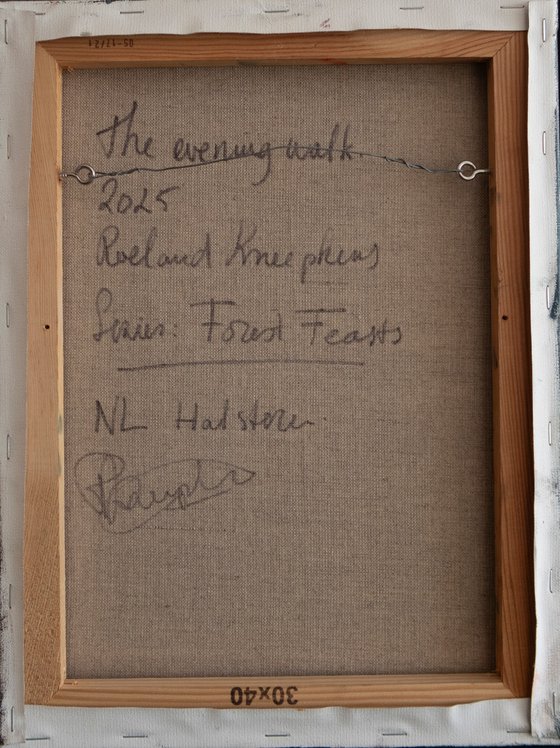 05-17/21
The evening walk.
2025
Roeland Kneepkens
Series: Forest Feasts
NL Halsteren
30x40